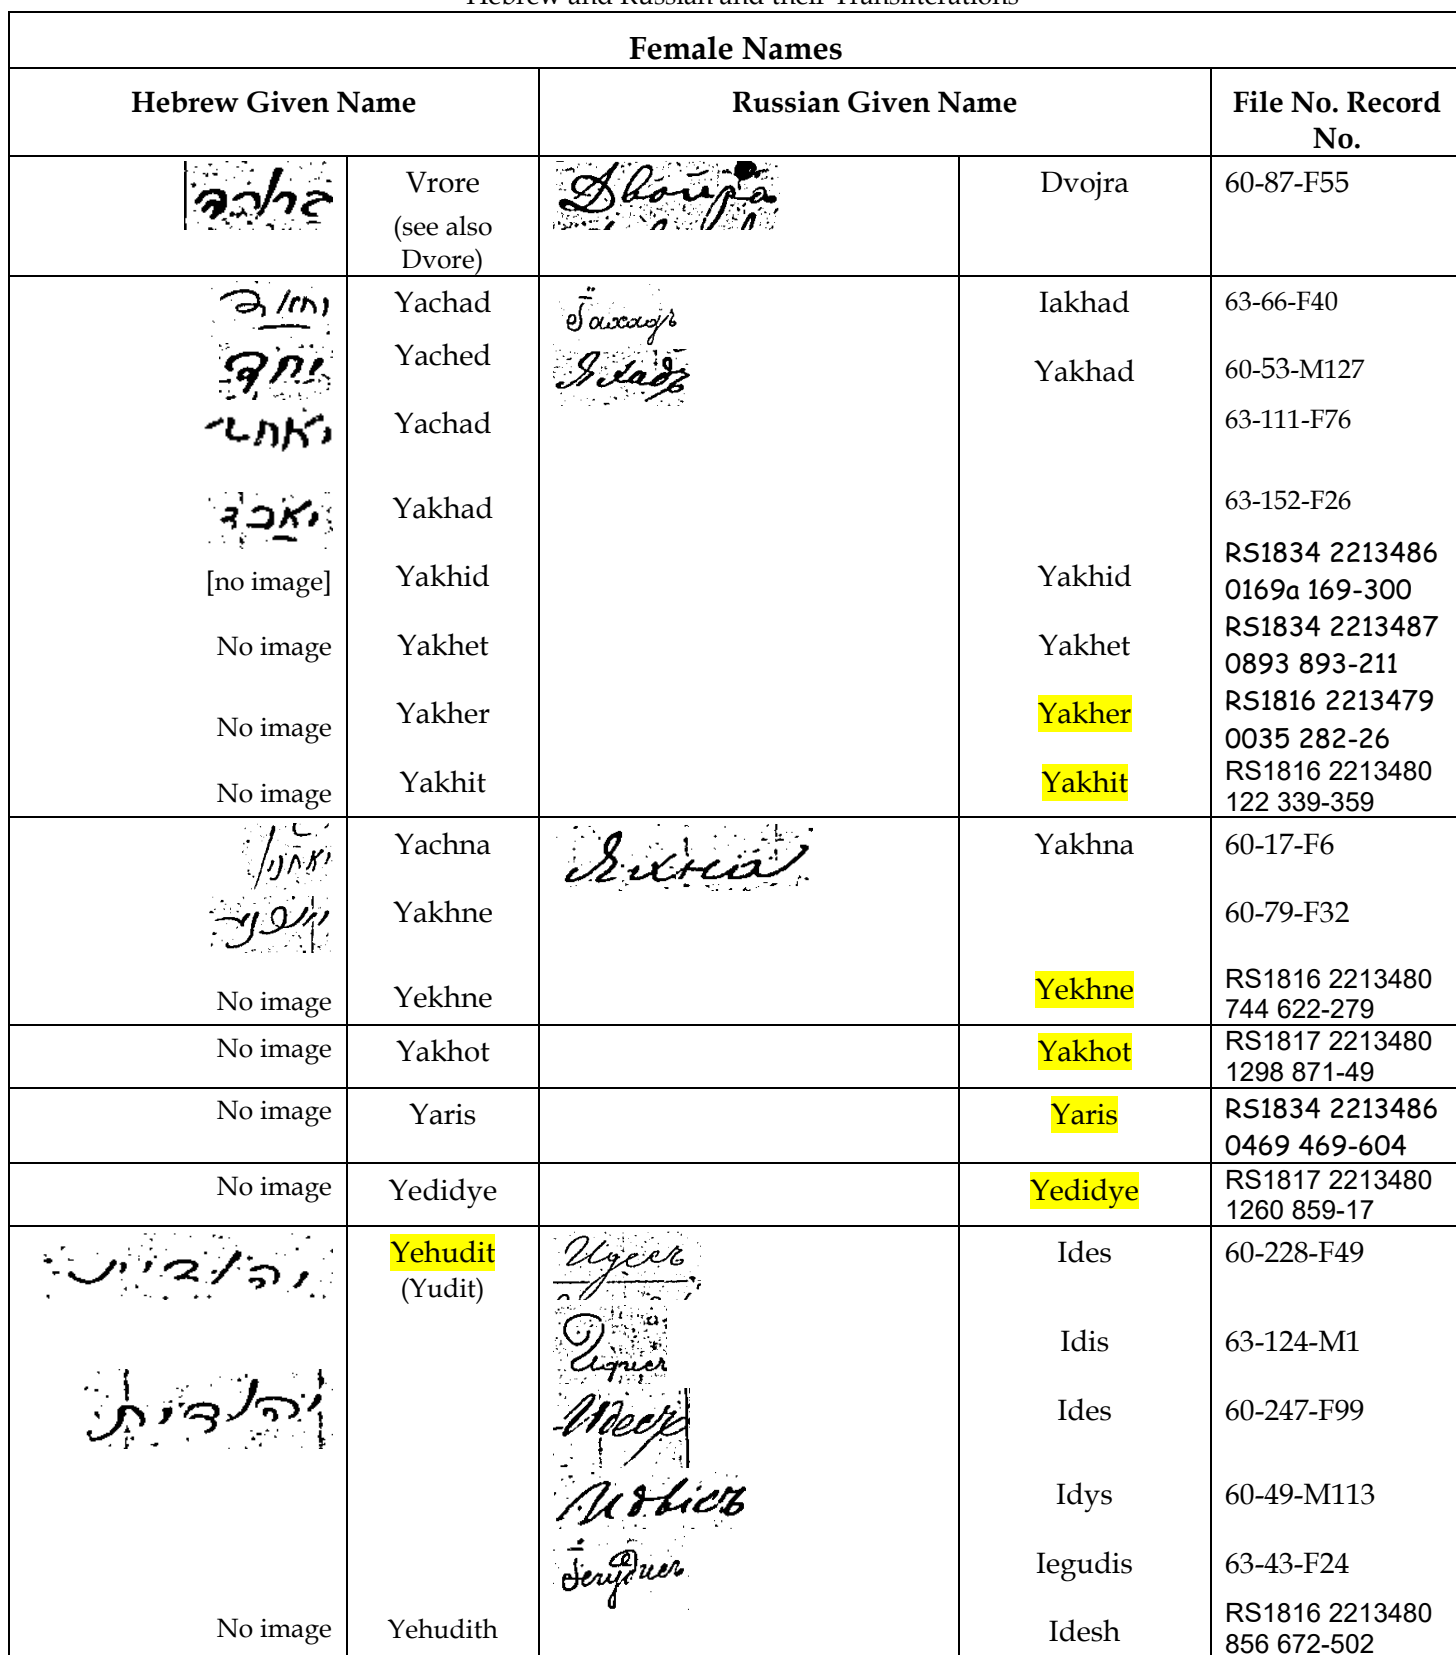 Hebrew and Russian and their Transliterations
Female Names
Hebrew Given Name Russian Given Name File No. Record No.
Vrore Двойра Dvojra 60-87-F55
(see also
Dvore)
Yachad Іахадъ Iakhad 63-66-F40
יחד Yached Яхадъ Yakhad 60-53-M127
Yachad 63-111-F76
יאכד Yakhad 63-152-F26
[no image] Yakhid Yakhid RS1834 2213486
0169a 169-300
No image Yakhet Yakhet RS1834 2213487
0893 893-211
No image Yakher Yakher RS1816 2213479
0035 282-26
No image Yakhit Yakhit RS1816 2213480
122 339-359
Yachna Яхна Yakhna 60-17-F6
Yakhne 60-79-F32
No image Yekhne Yekhne RS1816 2213480
744 622-279
No image Yakhot Yakhot RS1817 2213480
1298 871-49
No image Yaris Yaris RS1834 2213486
0469 469-604
No image Yedidye Yedidye RS1817 2213480
1260 859-17
יהודית Yehudit Идесъ Ides 60-228-F49
(Yudit)
Идисъ Idis 63-124-M1
יהודית Идесъ Ides 60-247-F99
Идысъ Idys 60-49-M113
Іегудисъ Iegudis 63-43-F24
No image Yehudith Idesh RS1816 2213480
856 672-502